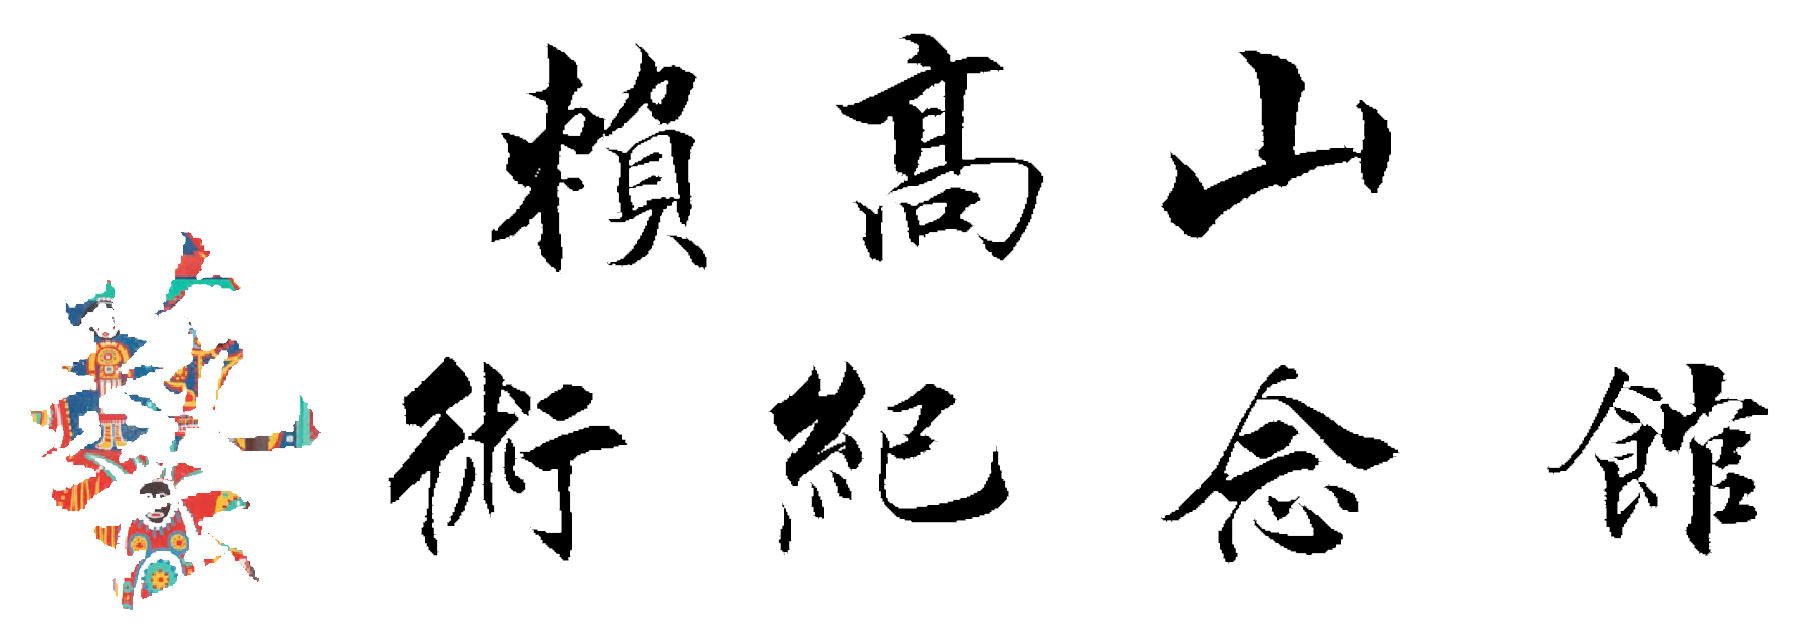 賴高山
藝術紀念館